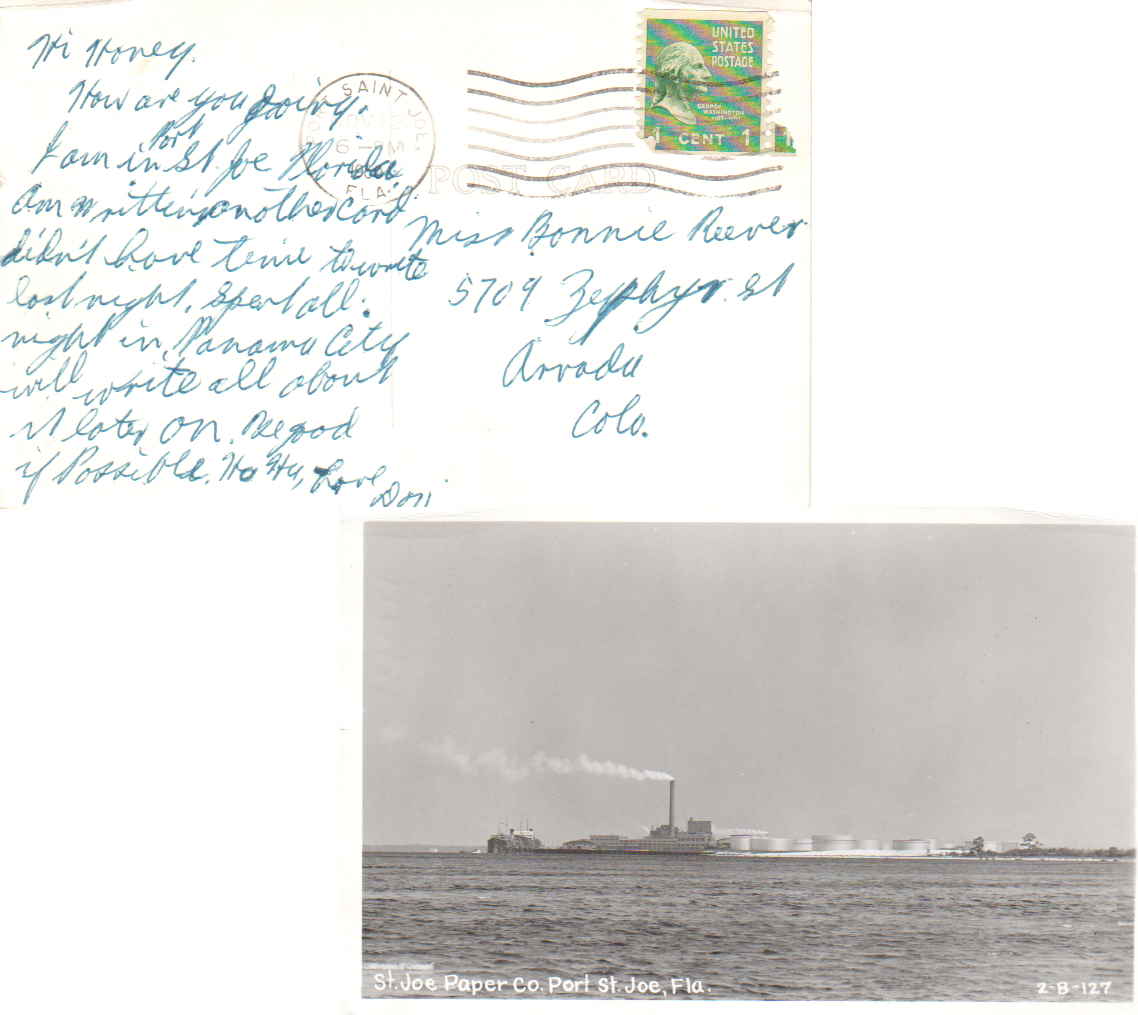 Hi Honey.
How are you doing.
I am in Port St. Joe Florida
Am writting another card
didn't have time to write
last night. Spent all.
night in Panama City
will write all about
it later on. Bee good
if Possible. Ha Ha, Love
Don
SAINT JOE.
FLA.
UNITED
STATES
POSTAGE
GEORGE
WASHINGTON
1 CENT 1
POST CARD
Miss Bonnie Reever
5709 Zephyr. St
Arvada
Colo.
St. Joe Paper Co. Port St. Joe, Fla.
2-B-127